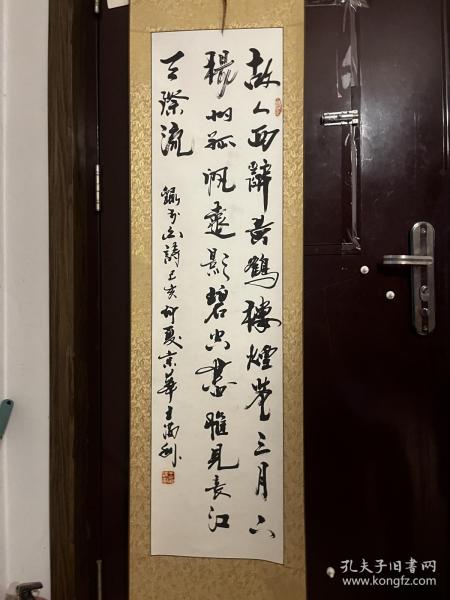 故人西辞黄鹤楼烟花三月下
扬州孤帆远影碧空尽唯见长江
天际流
录李白诗己亥仲夏京华
孔夫子旧书网
www.kongfz.com